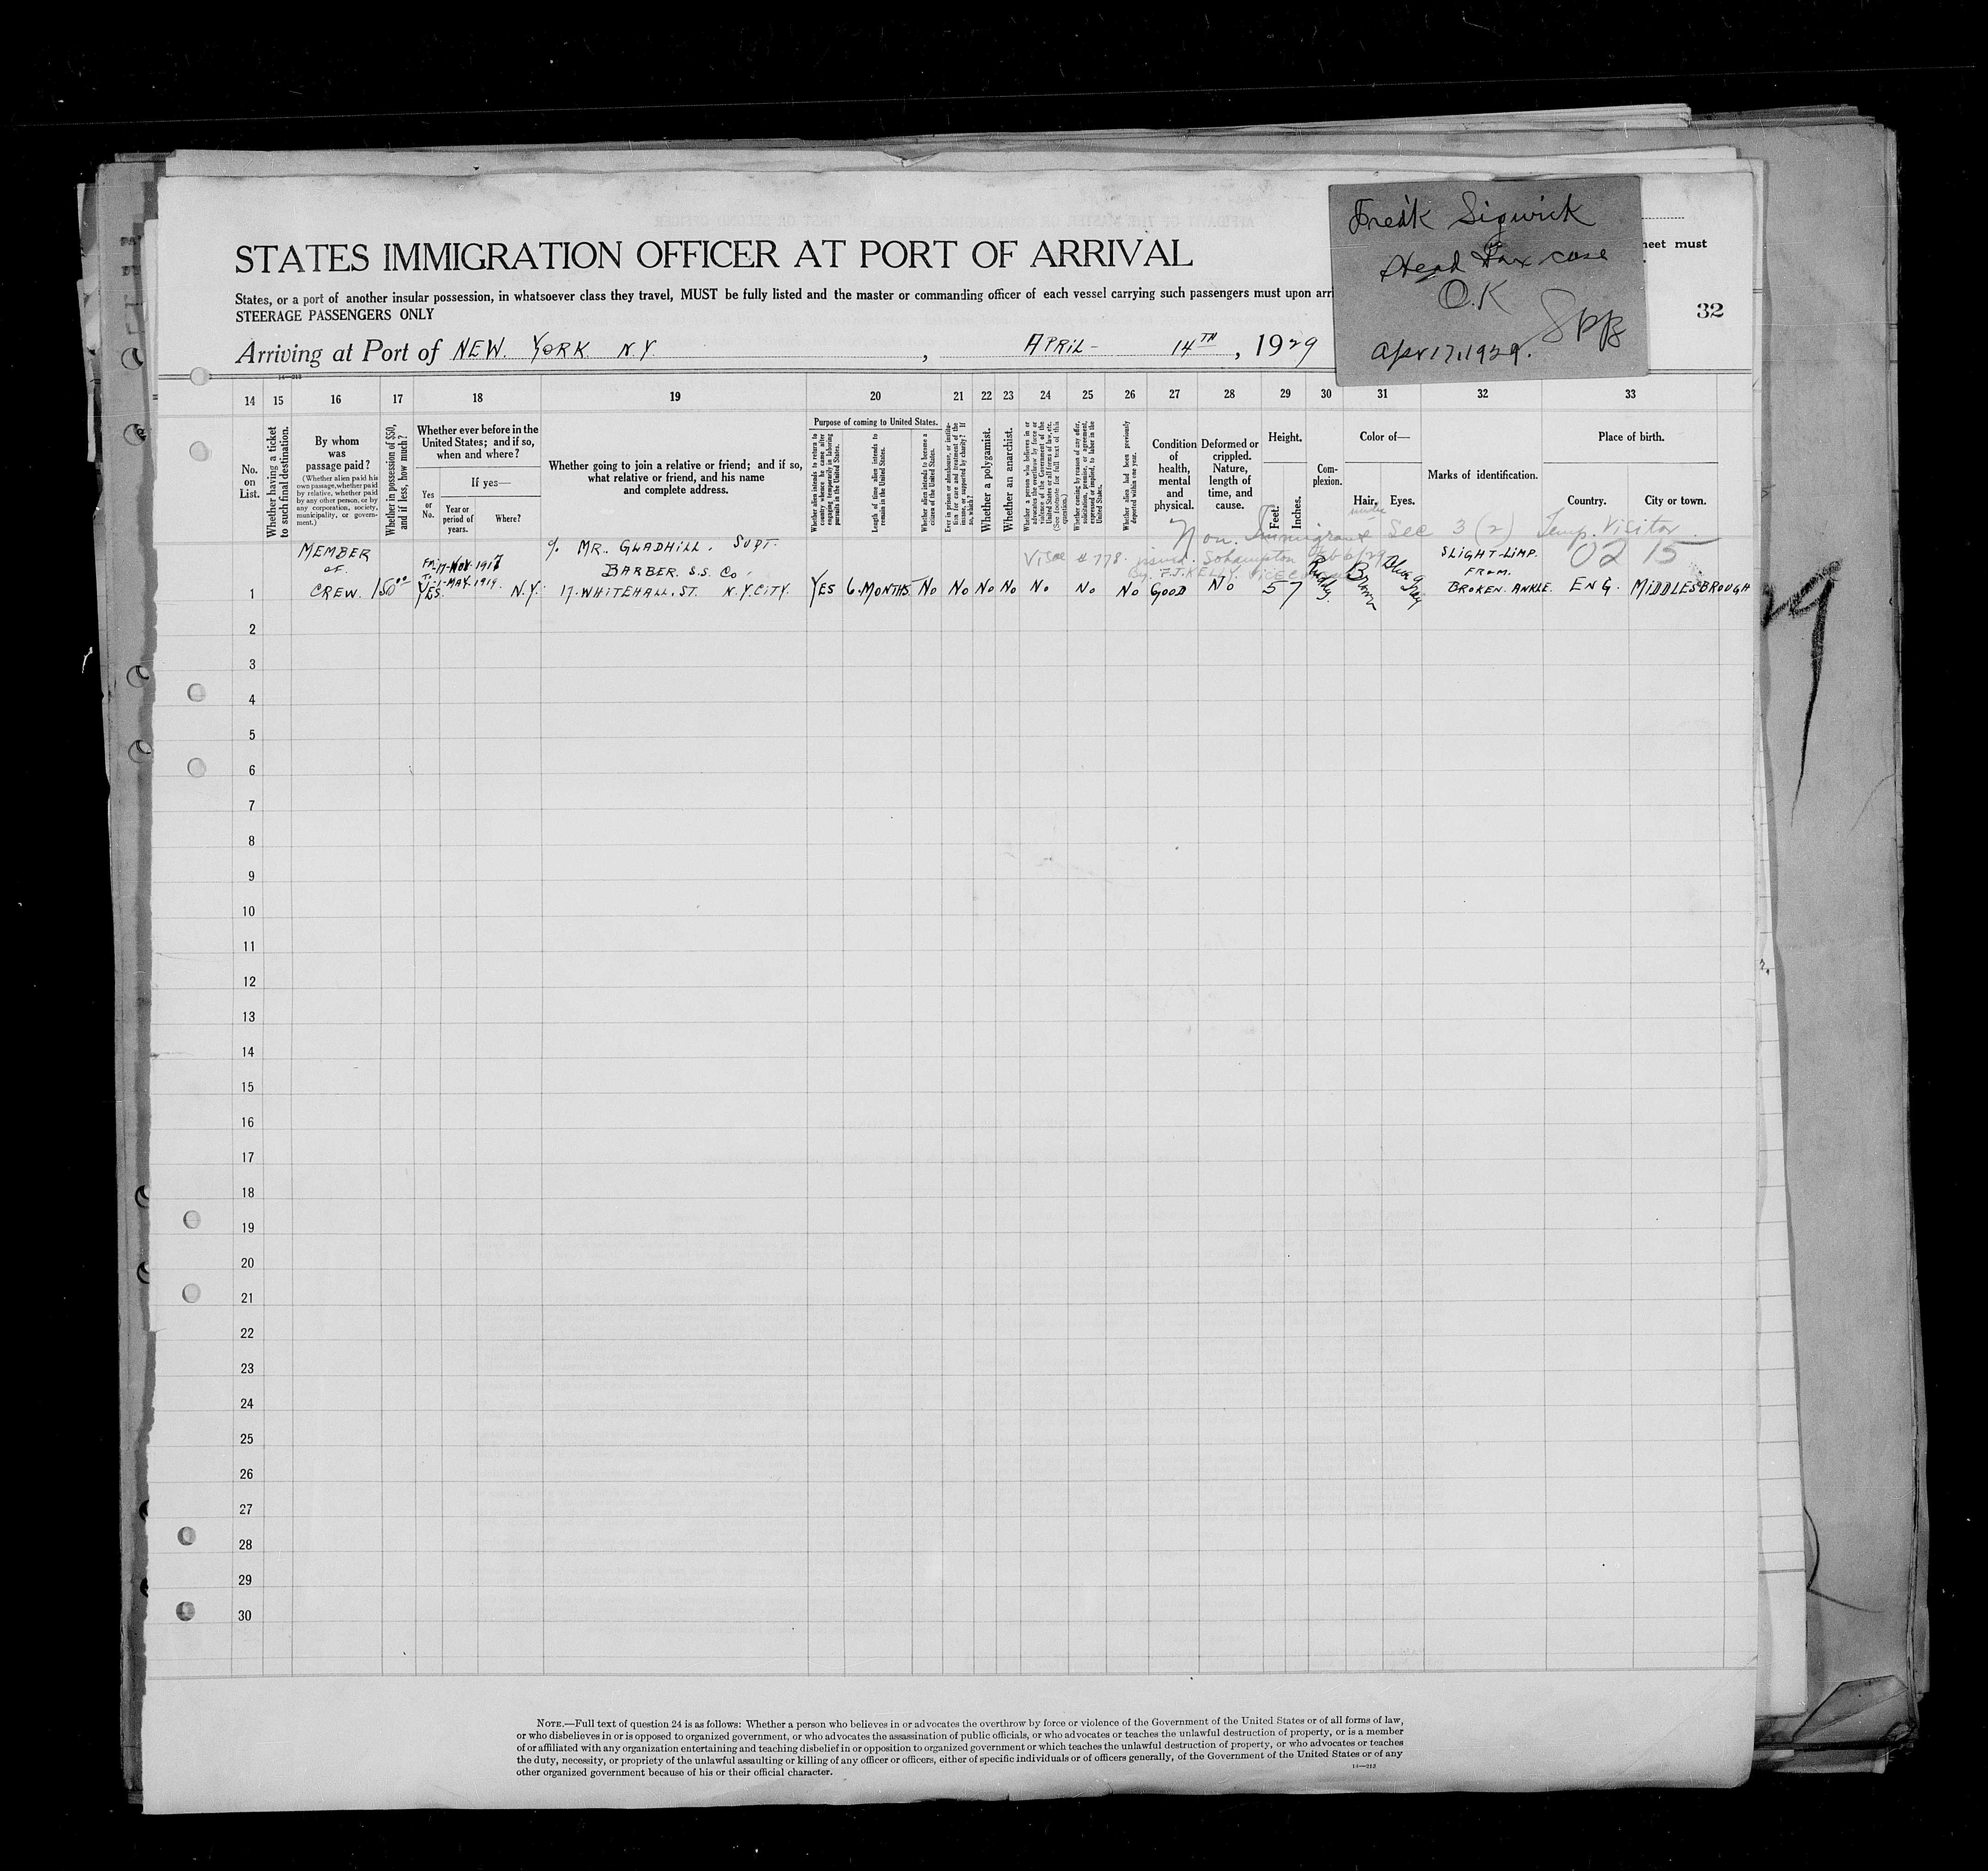 Fredk Sigwick
Head Tax case
O.K
Apr 17, 1929.
neet must
STATES IMMIGRATION OFFICER AT PORT OF ARRIVAL
States, or a port of another insular possession, in whatsoever class they travel, MUST be fully listed and the master or commanding officer of each vessel carrying such passengers must upon arr
STEERAGE PASSENGERS ONLY
32
Arriving at Port of NEW. YORK N.Y. , APRIL- 14TH , 1929
14—213
14 15 16 17 18 19 20 21 22 23 24 25 26 27 28 29 30 31 32 33
No. on List.
Whether having a ticket to such final destination.
By whom was passage paid?
(Whether alien paid his own passage, whether paid by relative, whether paid by any other person, or by any corporation, society, municipality, or government.)
Whether in possession of $50, and if less, how much?
Whether ever before in the United States; and if so, when and where?
Yes or No.
If yes—
Year or period of years.
Where?
Whether going to join a relative or friend; and if so, what relative or friend, and his name and complete address.
Purpose of coming to United States.
Whether alien intends to return to country whence he came after engaging temporarily in laboring pursuits in the United States.
Length of time alien intends to remain in the United States.
Whether alien intends to become a citizen of the United States.
Ever in prison or almshouse, or institution for care and treatment of the insane, or supported by charity? If so, which?
Whether a polygamist.
Whether an anarchist.
Whether a person who believes in or advocates the overthrow by force or violence of the Government of the United States or all forms of law, etc. (See footnote for full text of this question.)
Whether coming by reason of any offer, solicitation, promise, or agreement, expressed or implied, to labor in the United States.
Whether alien had been previously deported within one year.
Condition of health, mental and physical.
Deformed or crippled. Nature, length of time, and cause.
Height.
Feet.
Inches.
Complexion.
Color of—
Hair.
Eyes.
Marks of identification.
Place of birth.
Country.
City or town.
Non. Immigrant under Sec 3 (2) Temp. Visitor
Visae # 778. issued. Sohampton Feb 6/29
By. F.J. KELLY. Vice C
02 15
1
MEMBER
OF.
CREW.
150.00
FM. 17-NOV-1917
TO 1-MAY-1919.
YES.
N.Y.
% MR. GLADHILL. SUPT.
BARBER. S.S. Co.
17. WHITEHALL. ST. N.Y. CITY.
YES 6. MONTHS. No No No No No No No GOOD No 5 7 Ruddy. Brown Blue Gray
SLIGHT-LIMP.
FROM.
BROKEN. ANKLE.
ENG. MIDDLESBROUGH
2
3
4
5
6
7
8
9
10
11
12
13
14
15
16
17
18
19
20
21
22
23
24
25
26
27
28
29
30
NOTE.—Full text of question 24 is as follows: Whether a person who believes in or advocates the overthrow by force or violence of the Government of the United States or of all forms of law,
or who disbelieves in or is opposed to organized government, or who advocates the assassination of public officials, or who advocates or teaches the unlawful destruction of property, or is a member
of or affiliated with any organization entertaining and teaching disbelief in or opposition to organized government or which teaches the unlawful destruction of property, or who advocates or teaches
the duty, necessity, or propriety of the unlawful assaulting or killing of any officer or officers, either of specific individuals or of officers generally, of the Government of the United States or of any
other organized government because of his or their official character.
14—213